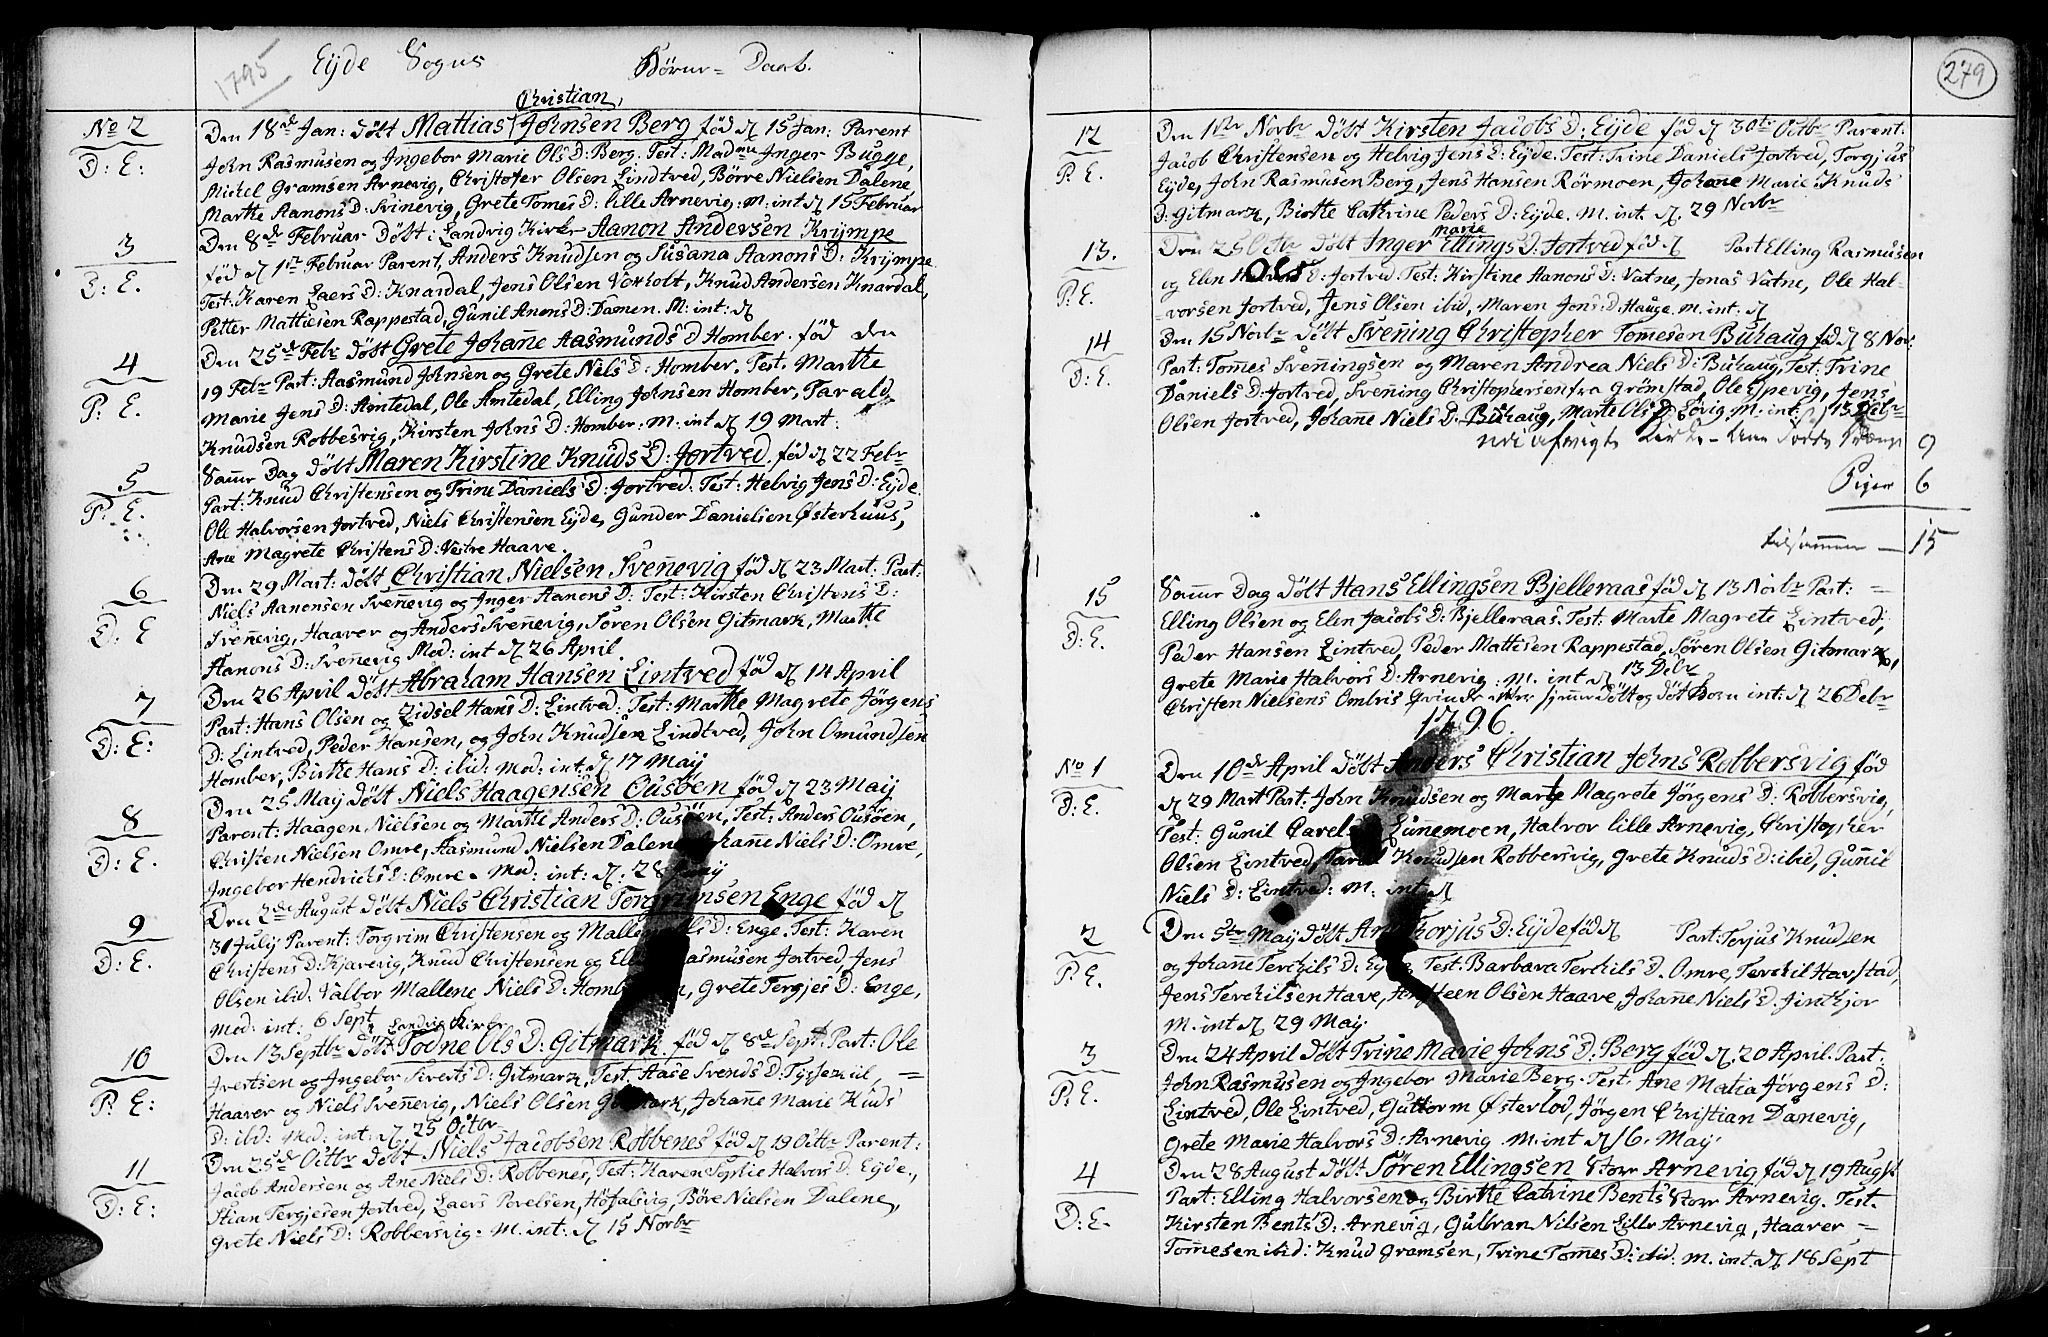 1795 Eijde Sogns Børne= Daab.
Christian,
No 2 Den 18de Jan: døbt Mattias Johnsen Berg fød d 15 Jan: Parent
D: E: John Rasmusen og Ingebor Marie Ols D: Berg. Test: Madme Inger Bugge,
Michel Gramsen Arnevig, Christofer Olsen Lindtved, Børre Nielsen Dalene,
Marthe Aanons D: Svinevig, Grete Tomes D: lille Arnevig: M: int d 15 Februar
3 Den 8de Februar Døbt i Landvig Kirke Aanon Andersen Krijmpe
D: E. fød d 1te Februar Parent, Anders Knudsen og Susana Aanons D: Krijmpe
Test: Karen Laers D: Knardal, Jens Olsen Voxholt, Knud Andersen Knardal,
Petter Mattiesen Rappestad, Gunil Anons D: Damen. M: int: d
4 Den 25de Febr døbt Grete Johanne Aasmunds D Homber. fød den
P: E. 19 Febr Part: Aasmund Johnsen og Grete Niels D: Homber. Test. Marthe
Marie Jens D: Amtedal, Ole Amtedal, Elling Johnsen Homber, Tarald
Knudsen Robbesvig, Kirsten Johns D: Homber: M: int d 19 Mart:
5 Samme Dag døbt Maren Kirstine Knuds D: Fortved. fød d 22 Febr
P: E. Part: Knud Christensen og Trine Daniels D: Fortved. Test: Helvig Jens D: Eijde
Ole Halvorsen Fortved, Niels Christensen Eijde, Gunder Danielsen Østerhuus,
Ane Magrete Christens D: Vestre Haave.
6 Den 29 Mart: døbt Christian Nielsen Svennevig fød d 23 Mart: Part:
D: E Niels Aanonsen Svennevig og Inger Aanons D: Test: Kirsten Christens D:
Svennevig, Haaver og Anders Svennevig, Søren Olsen Gitmark, Marthe
Aanons D: Svennevig Mod: int d 26 April.
7 Den 26 April døbt Abraham Hansen Lintved fød d 14 April
D: E: Part: Hans Olsen og Zidsel Hans D: Lintved: Test: Marthe Magrete Jørgens
D: Lintved, Peder Hansen, og John Knudsen Lindtved, John Omundsen
Homber, Birthe Hans D: ibid: Mod: int: d 17 Maij
8 Den 25 Maij døbt Niels Haagensen Ousøen fød d 23 Maij
D: E. Parent: Haagen Nielsen og Marthe Anders D: Ousøen, Test: Anders Ousøen,
Christen Nielsen Omre, Aasmund Nielsen Dalene Johanne Niels D: Omre,
Ingebor Hendrichs D: Omre. Mod: int: d. 28 Junij
9 Den 2de August døbt Niels Christian Torgrimsen Enge fød d
D: E. 31 Julij Parent: Torgrim Christensen og Mallene Niels D: Enge. Test: Karen
Christens D: Kjarevig, Knud Christensen og Elling Rasmusen Fortved Jens
Olsen ibid. Valbor Mallene Niels D: Homb, Grete Tergjes D: Enge,
Mod: int: 6 Sept. Landvig Kirke
10 Den 13 Septbr døbt Todne Ols D: Gitmark. fød d 8de Sept: Part: Ole
P: E: Ivertsen og Ingebor Siverts D: Gitmark, Test. Aase Svends D: Tyssekiil, =
Haaver og Niels Svennevig, Niels Olsen Gitmark, Johanne Marie Kiuds
D: ibid: Mod: int: d 25 Octbr
11 Den 25de Octbr døbt Niels Jacobsen Robbenes fød d 19 Octbr Parent:
D: E: Jacob Andersen og Ane Niels D: Robbenes, Test: Karen Sophie Halvors D: Eijde.,
Stian Tergjesen Fortved, Laers Povelsen, Høfalsvig, Børe Nielsen Dalene,
Grete Niels D: Robbersvig. M. int: d 15 Norbr
279
12 Den 1ste Norbr døbt Kirsten Jacobs D: Eijde fød d 30te Octbr Parent:
P. E. Jacob Christensen og Helvig Jens D: Eijde. Test: Trine Daniels Fortved, Torgjus
Eijde, John Rasmusen Berg, Jens Hansen Rørmoen, Johanne Marie Knuds
D: Gitmark, Birthe Cathrine Peders D: Eijde. M. int. d. 29 Norbr
Marie
13. Den 25 Octbr døbt Inger Ellings D: Fortved fød d Part Elling Rasmusen
P: E. og Elen Ols D: Fortved. Test: Kirstine Aanons D: Vatne, Jonas Vatne, Ole Hal-
-vorsen Fortved, Jens Olsen ibid, Maren Jens D: Hauge. M. int: d
14 Den 15 Norbr døbt Svening Christopher Tomesen Buhaug fød d 8 Nov:
D: E. Part: Tomes Svenningsen og Maren Andrea Niels D: Buhaug, Test: Trine
Daniels D: Fortved, Svening Christophersen fra Grømstad, Ole Espevig, Jens
Olsen Fortved, Johanne Niels D: Buhaug, Marte Ols D: Løvig. M: int: d 13 Debr
9
Piger 6
tilsammen — 15
15 Samme Dag døbt Hans Ellingsen Bjelleraas fød d 13 Norbr Part: =
D: E. Elling Olsen og Elen Jacobs D: Bjelleraas. Test: Marte Magrete Lintved,
Peder Hansen Lintved, Peder Mattisen Rappestad, Søren Olsen Gitmark,
Grete Marie Halvors D: Arnevig: M. int d 13 Debr
Christen Nielsens Ombris Qvinde hjemme døbt og død Barn int: d 26 Debr
1796.
No 1 Den 10de April døbt Anders Christian Johns Robbersvig fød
D: E. d 29 Mart Part: John Knudsen og Marthe Magrete Jørgens D: Robbersvig,
Test: Gunil Carels Lunnemoen, Halvor lille Arnevig, Christopher
Olsen Lintved, Tarald Knudsen Robbersvig, Grete Knuds D: ibid, Gunnil
Niels D: Lintved: M. int d
2 Den 5te Maij døbt Ane Thorjus D: Eijde fød d Part: Torjus Knudsen
P: E. og Johanne Terchils D: Eijde Test: Barbara Terchils D. Omre, Terchil Havstad,
Jens Terchilsen Have, Angsteen Olsen Haave, Johanne Niels D. Finthjor
M. int d 29 Maij.
3 Den 24 April døbt Trine Marie Johns D: Berg fød d. 20 April. Part:
P: E. John Rasmusen og Ingebor Marie Berg. Test. Ane Matia Jørgens D:
Lintved, Ole Lintved, Guttorm Østerlod, Jørgen Christian Danevig,
Grete Marie Halvors D: Arnevig. M. int d 16. Maij.
4 Den 28 August døbt Søren Ellingsen Store Arnevig fød d 19 Augst
D: E. Part: Elling Halvorsen og Birthe Catrine Bents Store Arnevig. Test.
Kirsten Bents D: Arnevig, Gulbran Nilsen Lille Arnevig, Haaver =
Tomesen ibid: Knud Gramsen, Trine Tomes D: ibid: M. int: d 18 Sept